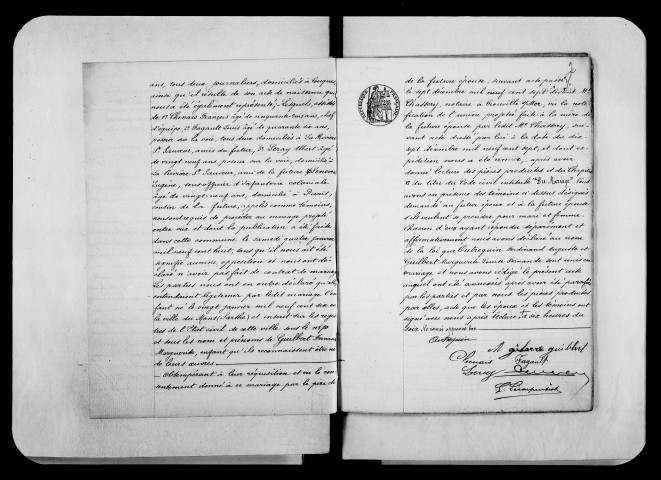 ans, tous deux journaliers, domiciliés à
ainsi qu'il résulte de son acte de naissance qui
nous a été également représenté; Lesquels, assistés
de 1° Chenais François âgé de cinquante-tous ans, chef
d'équipe, 2° Fagault Louis âgé de quarante six ans,
poseur de la voie, tous deux domiciliés à La Rivière
St Sauveur, amis du futur, 3° Leray Albert âgé
de vingt-neuf ans, poseur sur la voie, domicilié à
La Rivière St Sauveur, ami de la future
Eugène, sous-officier d'Infanterie coloniale
âgé de vingt-neuf ans, domicilié à Paris,
cousin de la future, appelés comme témoins,
nous ont requis de procéder au mariage projeté
entre eux et dont la publication a été faite
dans cette commune le samedi quatre janvier
mil neuf cent huit, sans qu'il nous ait été
signifié aucune opposition et nous ont dé-
claré n'avoir pas fait de contrat de mariage
Les parties nous ont en outre déclaré qu'elles
entendaient légitimer par ledit mariage l'en-
fant né le vingt janvier mil neuf cent six en
la ville du Mans (Sarthe) et inscrit sur les regis-
tres de l'Etat civil de cette ville sous le n°
et sous les nom et prénoms de Guilbert
Marguerite, enfant qu'ils reconnaissent être né
de leurs œuvres.
Obtempérant à leur réquisition et vu le con-
sentement donné à ce mariage par le père de
de la future épouse, suivant acte passé
le sept décembre mil neuf cent sept, devant Me
Chassery, notaire à vu la noti-
fication de l'union projetée faite à la mère de
la future épouse par ledit Me Chassery, sui-
vant acte dressé par lui à la date du dix
sept décembre mil neuf cent sept, et dont ex-
pédition nous a été remise, après avoir
donné lecture des pièces produites et du Chapitre
VI du titre du Code civil intitulé "Du Mariage" nous
avons en présence des témoins ci-dessus désignés
demandé au futur époux et à la future épouse
s'ils veulent se prendre pour mari et femme.
Chacun d'eux ayant répondu séparément et
affirmativement nous avons déclaré au nom
de la loi que Ferdinand Auguste et
Guilbert Marguerite Louise Fernande sont unis en
mariage et nous avons rédigé le présent acte
auquel ont été annexées après avoir été paraphées
par les parties et par nous les pièces produites
par elles, acte que les époux et les témoins ont
signé avec nous après lecture, à dix heures du
soir.
M guilbert
Chenais Fagault
Leray